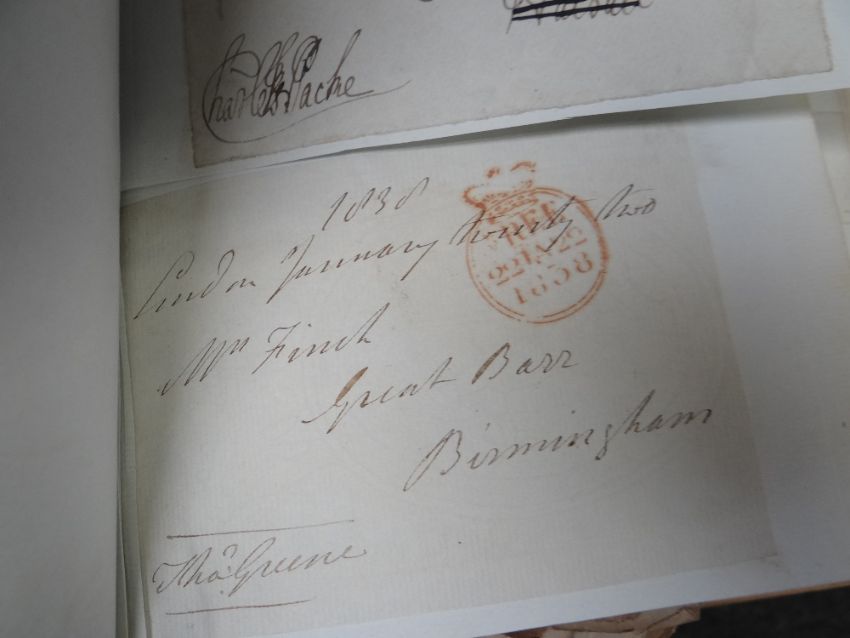 Charles Pache
1838
London January twenty two
FREE
22 JA 22
1838
Mrs Finch
Great Barr
Birmingham
Thos. Greene